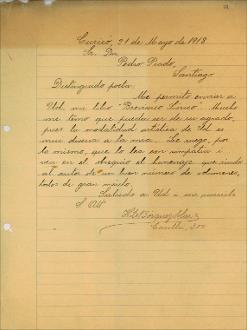 Curicó, 21 de Mayo de 1918
Sr. Don
Pedro Prado,
Santiago
Distinguido poeta:
Me permito enviar a
Ud. mi libro " Lírico". Mucho
me temo que pueda ser de su agrado,
pues la modalidad artística de Ud. es
muy diversa a la mía. Le ruego, por
lo mismo, que lo lea con simpatía i
vea en el obsequio el homenaje que rindo
al autor de un buen número de volúmenes,
todos de gran mérito.
Saludo a Ud.
S. Att
Casilla,